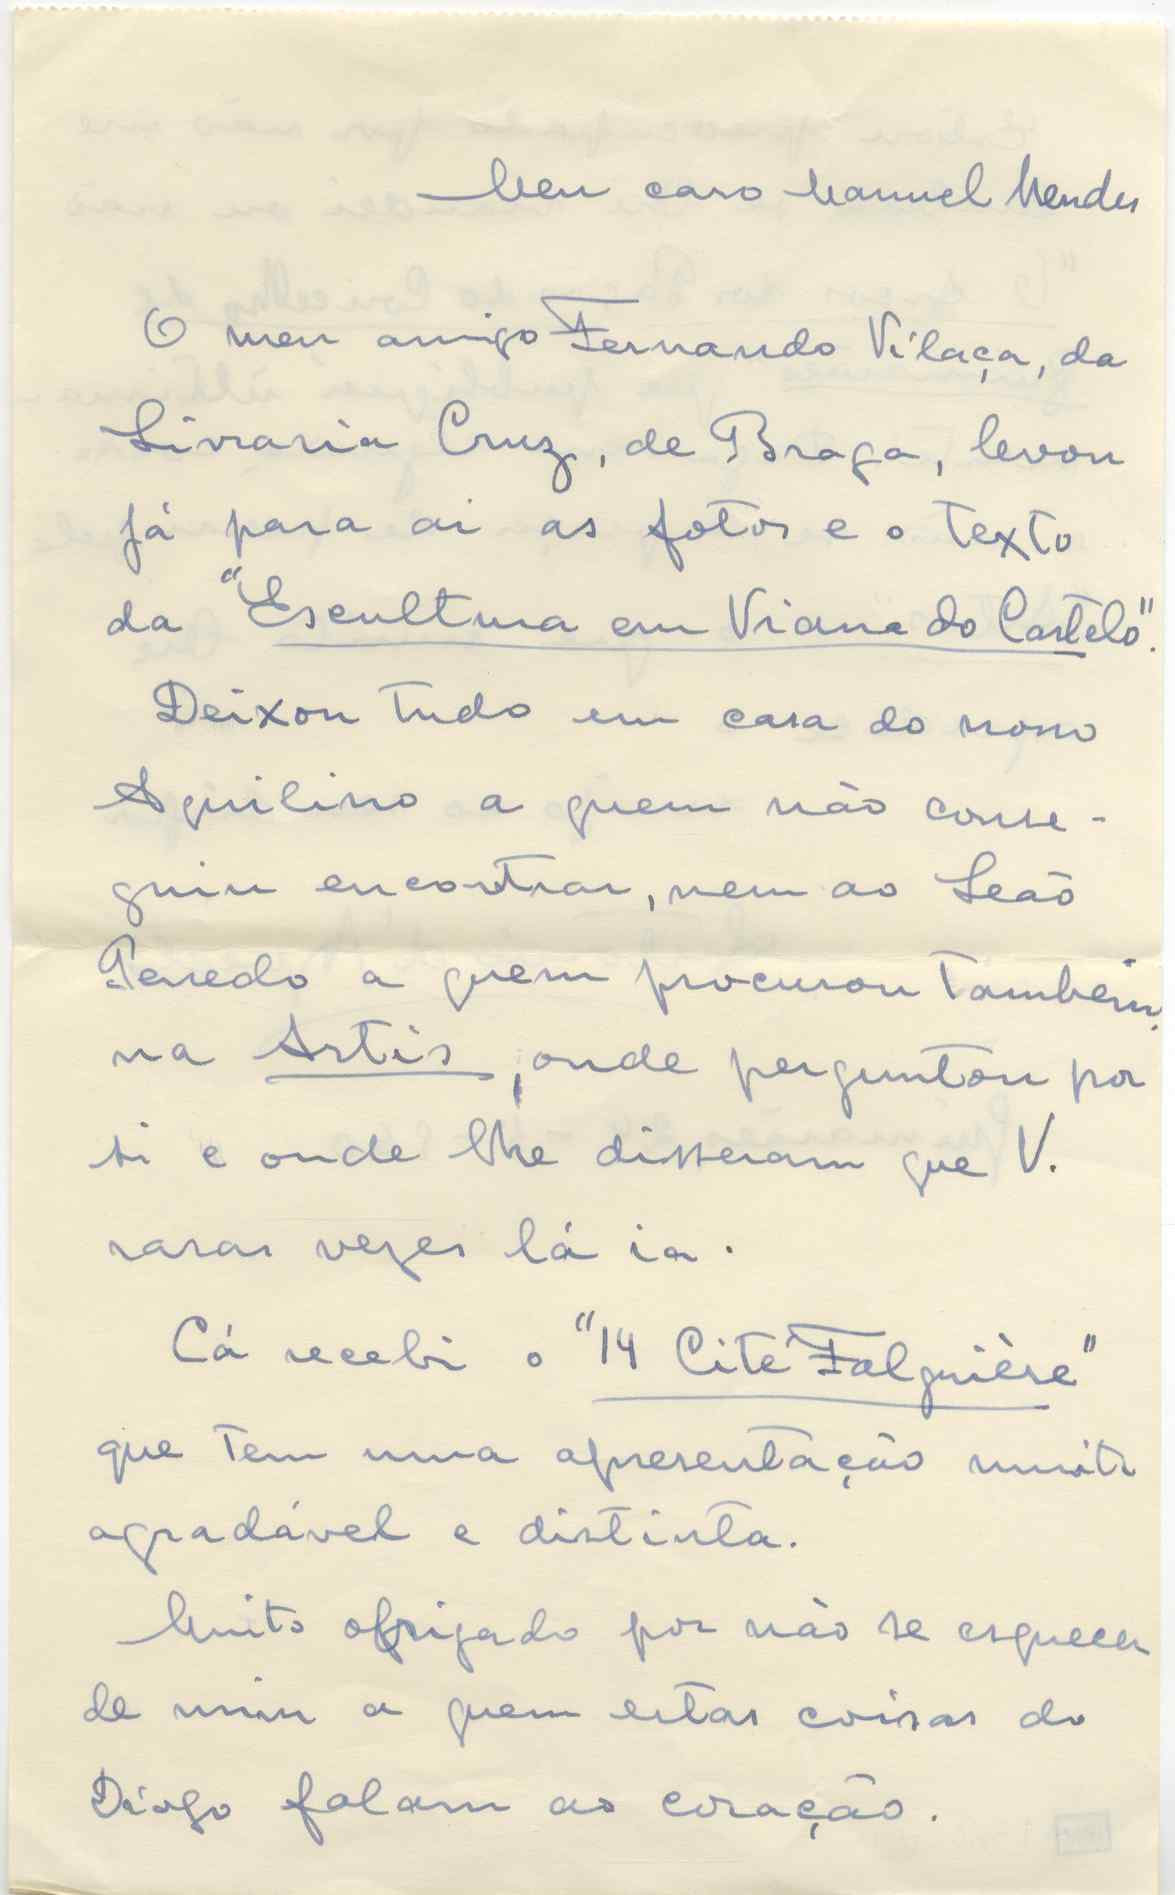 Meu caro Manuel Mendes
O meu amigo Fernando Vilaça, da
Livraria Cruz, de Braga, levou
já para aí as fotos e o texto
da "Escultura em Viana do Castelo".
Deixou tudo em casa do nosso
Aquilino a quem não conse-
guiu encontrar, nem ao Leão
Penedo a quem procurou também,
na Artis, onde perguntou por
si e onde lhe disseram que V.
raras vezes lá ia.
Cá recebi o "14 Cité Falguière"
que tem uma apresentação muito
agradável e distinta.
Muito obrigado por não se esquecer
de mim a quem estas coisas do
Diogo falam ao coração.